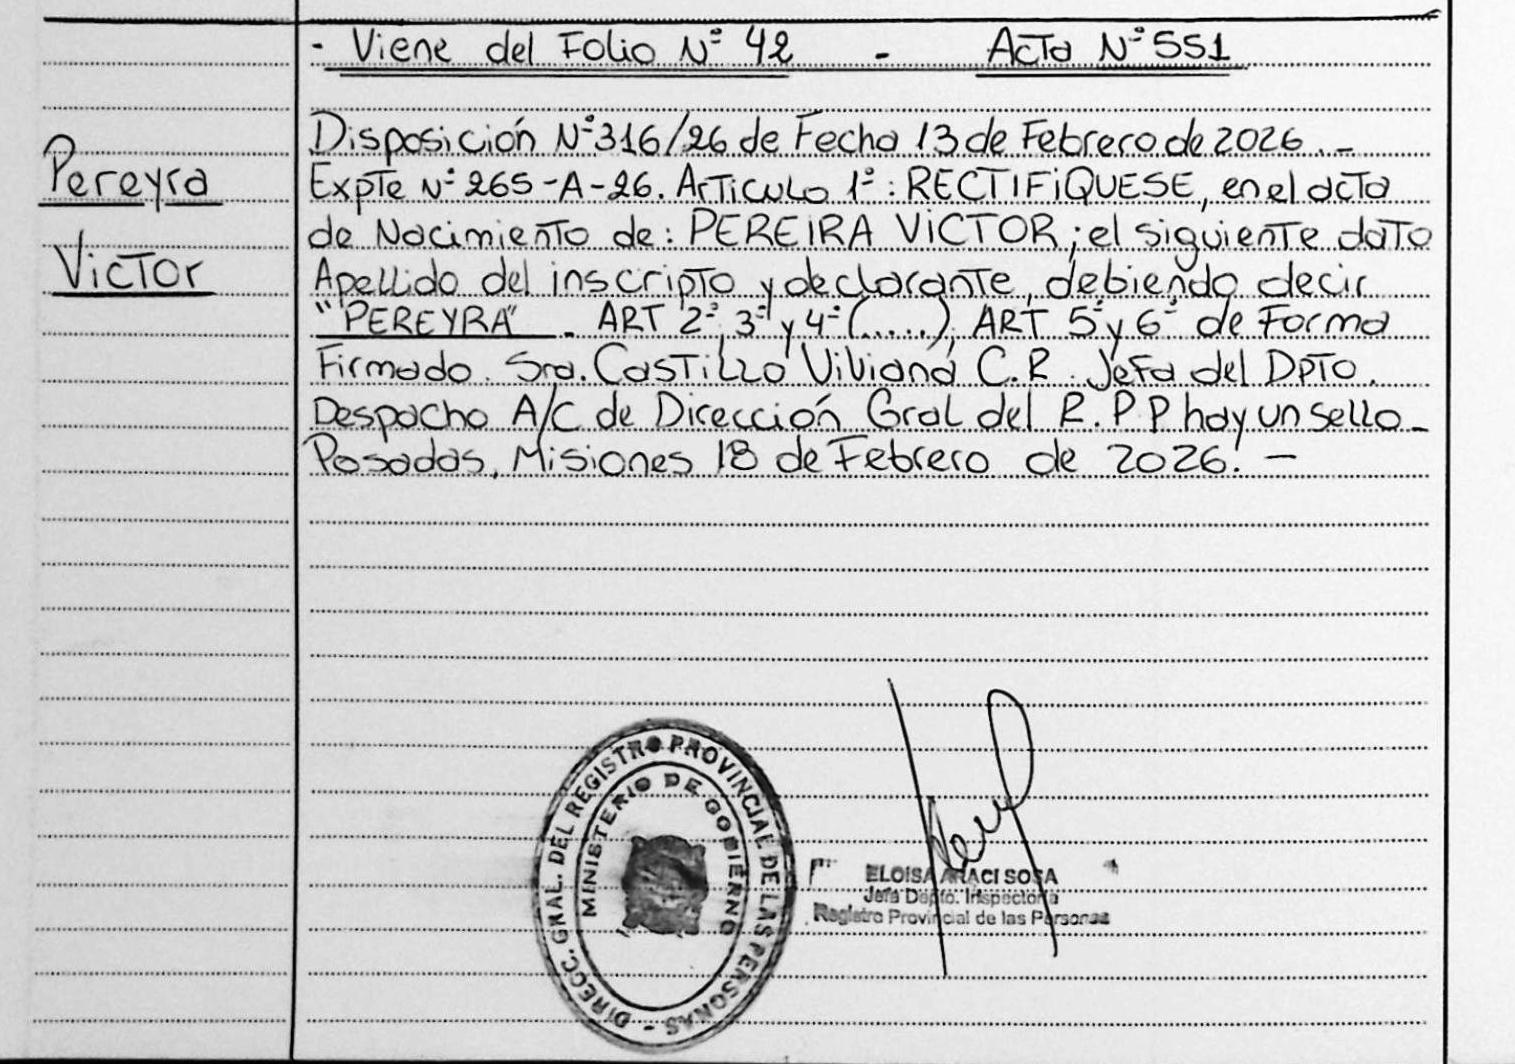 - Viene del Folio Nº 42 - Acta Nº 551
Pereyra
Victor
Disposición Nº 316/26 de Fecha 13 de Febrero de 2026. -
Expte Nº 265-A-26. Articulo 1º: RECTIFIQUESE, en el acta
de Nacimiento de: PEREIRA VICTOR; el siguiente dato
Apellido del inscripto y declarante, debiendo decir
"PEREYRA" - ART 2º, 3º y 4º (.....), ART 5º y 6º de Forma
Firmado. Sra. Castillo Viviana C.R. Jefa del Dpto.
Despacho A/C de Dirección Gral del R.P.P hay un sello -
Posadas, Misiones 18 de Febrero de 2026. -
DIRECC. GRAL. DEL REGISTRO PROVINCIAL DE LAS PERSONAS -
MINISTERIO DE GOBIERNO
ELOISA ARACI SOSA
Jefa Depto. Inspectoría
Registro Provincial de las Personas